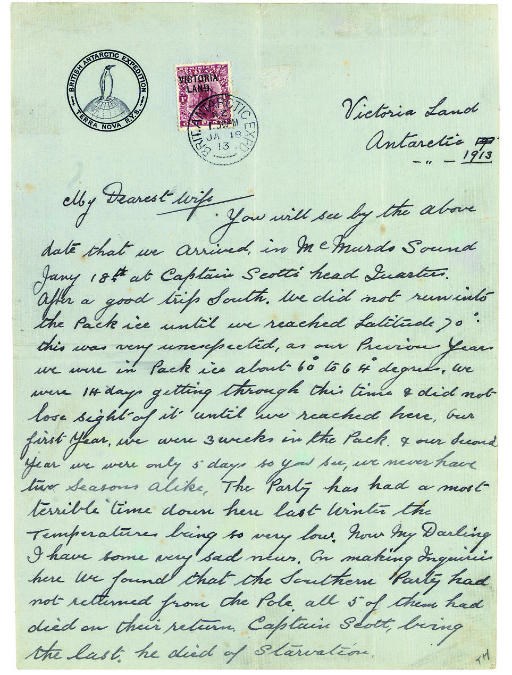 BRITISH ANTARCTIC EXPEDITION
TERRA NOVA R.Y.S.
VICTORIA
LAND.
BRIT. ANTARCTIC EXPD.
JA 18
13
Victoria Land
Antarctic
-"- 1913
My Dearest Wife
You will see by the above
date that we arrived, in McMurdo Sound
Jany 18th at Captain Scott's head Quarters.
After a good trip South. We did not run into
the Pack ice until we reached Latitude 70°.
this was very unexpected, as our Previous Years
we were in Pack ice about 60° to 64° degrees. We
were 14 days getting through this time & did not
lose sight of it until we reached here, our
first Year, we were 3 weeks in the Pack. & our Second
Year we were only 5 days so you see, we never have
two seasons alike, The Party has had a most
terrible time down here last Winter the
Temperatures being so very low. Now My Darling
I have some very sad news. On making Inquiries
here We found that the Southern Party had
not returned from the Pole. all 5 of them had
died on their return. Captain Scott, being
the last. he died of Starvation.